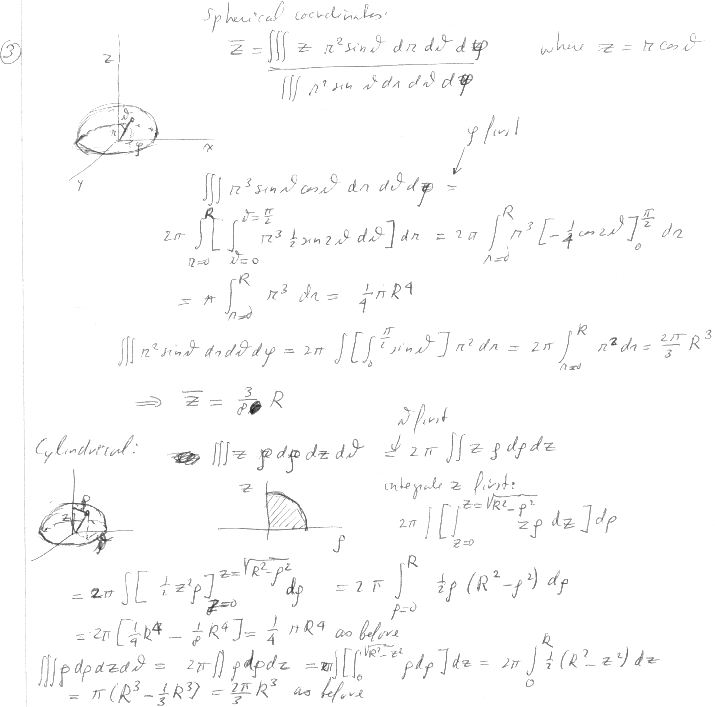 Spherical coordinates:
③ z̄ = ∭ z r² sinϑ dr dϑ dφ / ∭ r² sin ϑ dr dϑ dφ where z = r cosϑ
z
ϑ
r
φ
x
y
φ first
∭ r³ sinϑ cosϑ dr dϑ dφ =
2π ∫_{r=0}^{R} [ ∫_{ϑ=0}^{ϑ=π/2} r³ ½ sin2ϑ dϑ ] dr = 2π ∫_{r=0}^{R} r³ [ -¼ cos2ϑ ]_0^{π/2} dr
= π ∫_{r=0}^{R} r³ dr = ¼ π R⁴
∭ r² sinϑ dr dϑ dφ = 2π ∫ [ ∫_0^{π/2} sinϑ ] r² dr = 2π ∫_{r=0}^{R} r² dr = 2π/3 R³
⇒ z̄ = 3/8 R
ϑ first
Cylindrical: ∭ z ρ dρ dz dϑ = 2π ∬ z ρ dρ dz
z
ρ
integrate z first:
2π ∫ [ ∫_{z=0}^{z=√(R²-ρ²)} zρ dz ] dρ
= 2π ∫ [ ½ z²ρ ]_{z=0}^{z=√(R²-ρ²)} dρ = 2π ∫_{ρ=0}^{R} ½ρ (R²-ρ²) dρ
= 2π [ ¼R⁴ - ⅛R⁴ ] = ¼ π R⁴ as before
∭ ρ dρ dz dϑ = 2π ∬ ρ dρ dz = 2π ∫ [ ∫_0^{√(R²-z²)} ρ dρ ] dz = 2π ∫_0^R ½ (R²-z²) dz
= π (R³ - ⅓R³) = 2π/3 R³ as before